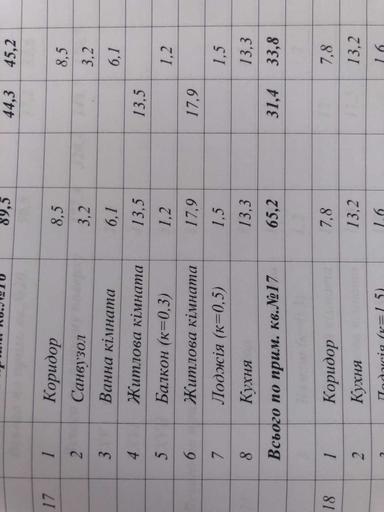 прим. кв.№16 89,5 44,3 45,2
17 1 Коридор 8,5 8,5
2 Санвузол 3,2 3,2
3 Ванна кімната 6,1 6,1
4 Житлова кімната 13,5 13,5
5 Балкон (к=0,3) 1,2 1,2
6 Житлова кімната 17,9 17,9
7 Лоджія (к=0,5) 1,5 1,5
8 Кухня 13,3 13,3
Всього по прим. кв.№17 65,2 31,4 33,8
18 1 Коридор 7,8 7,8
2 Кухня 13,2 13,2
Лоджія (к=1,5) 1,6 1,6